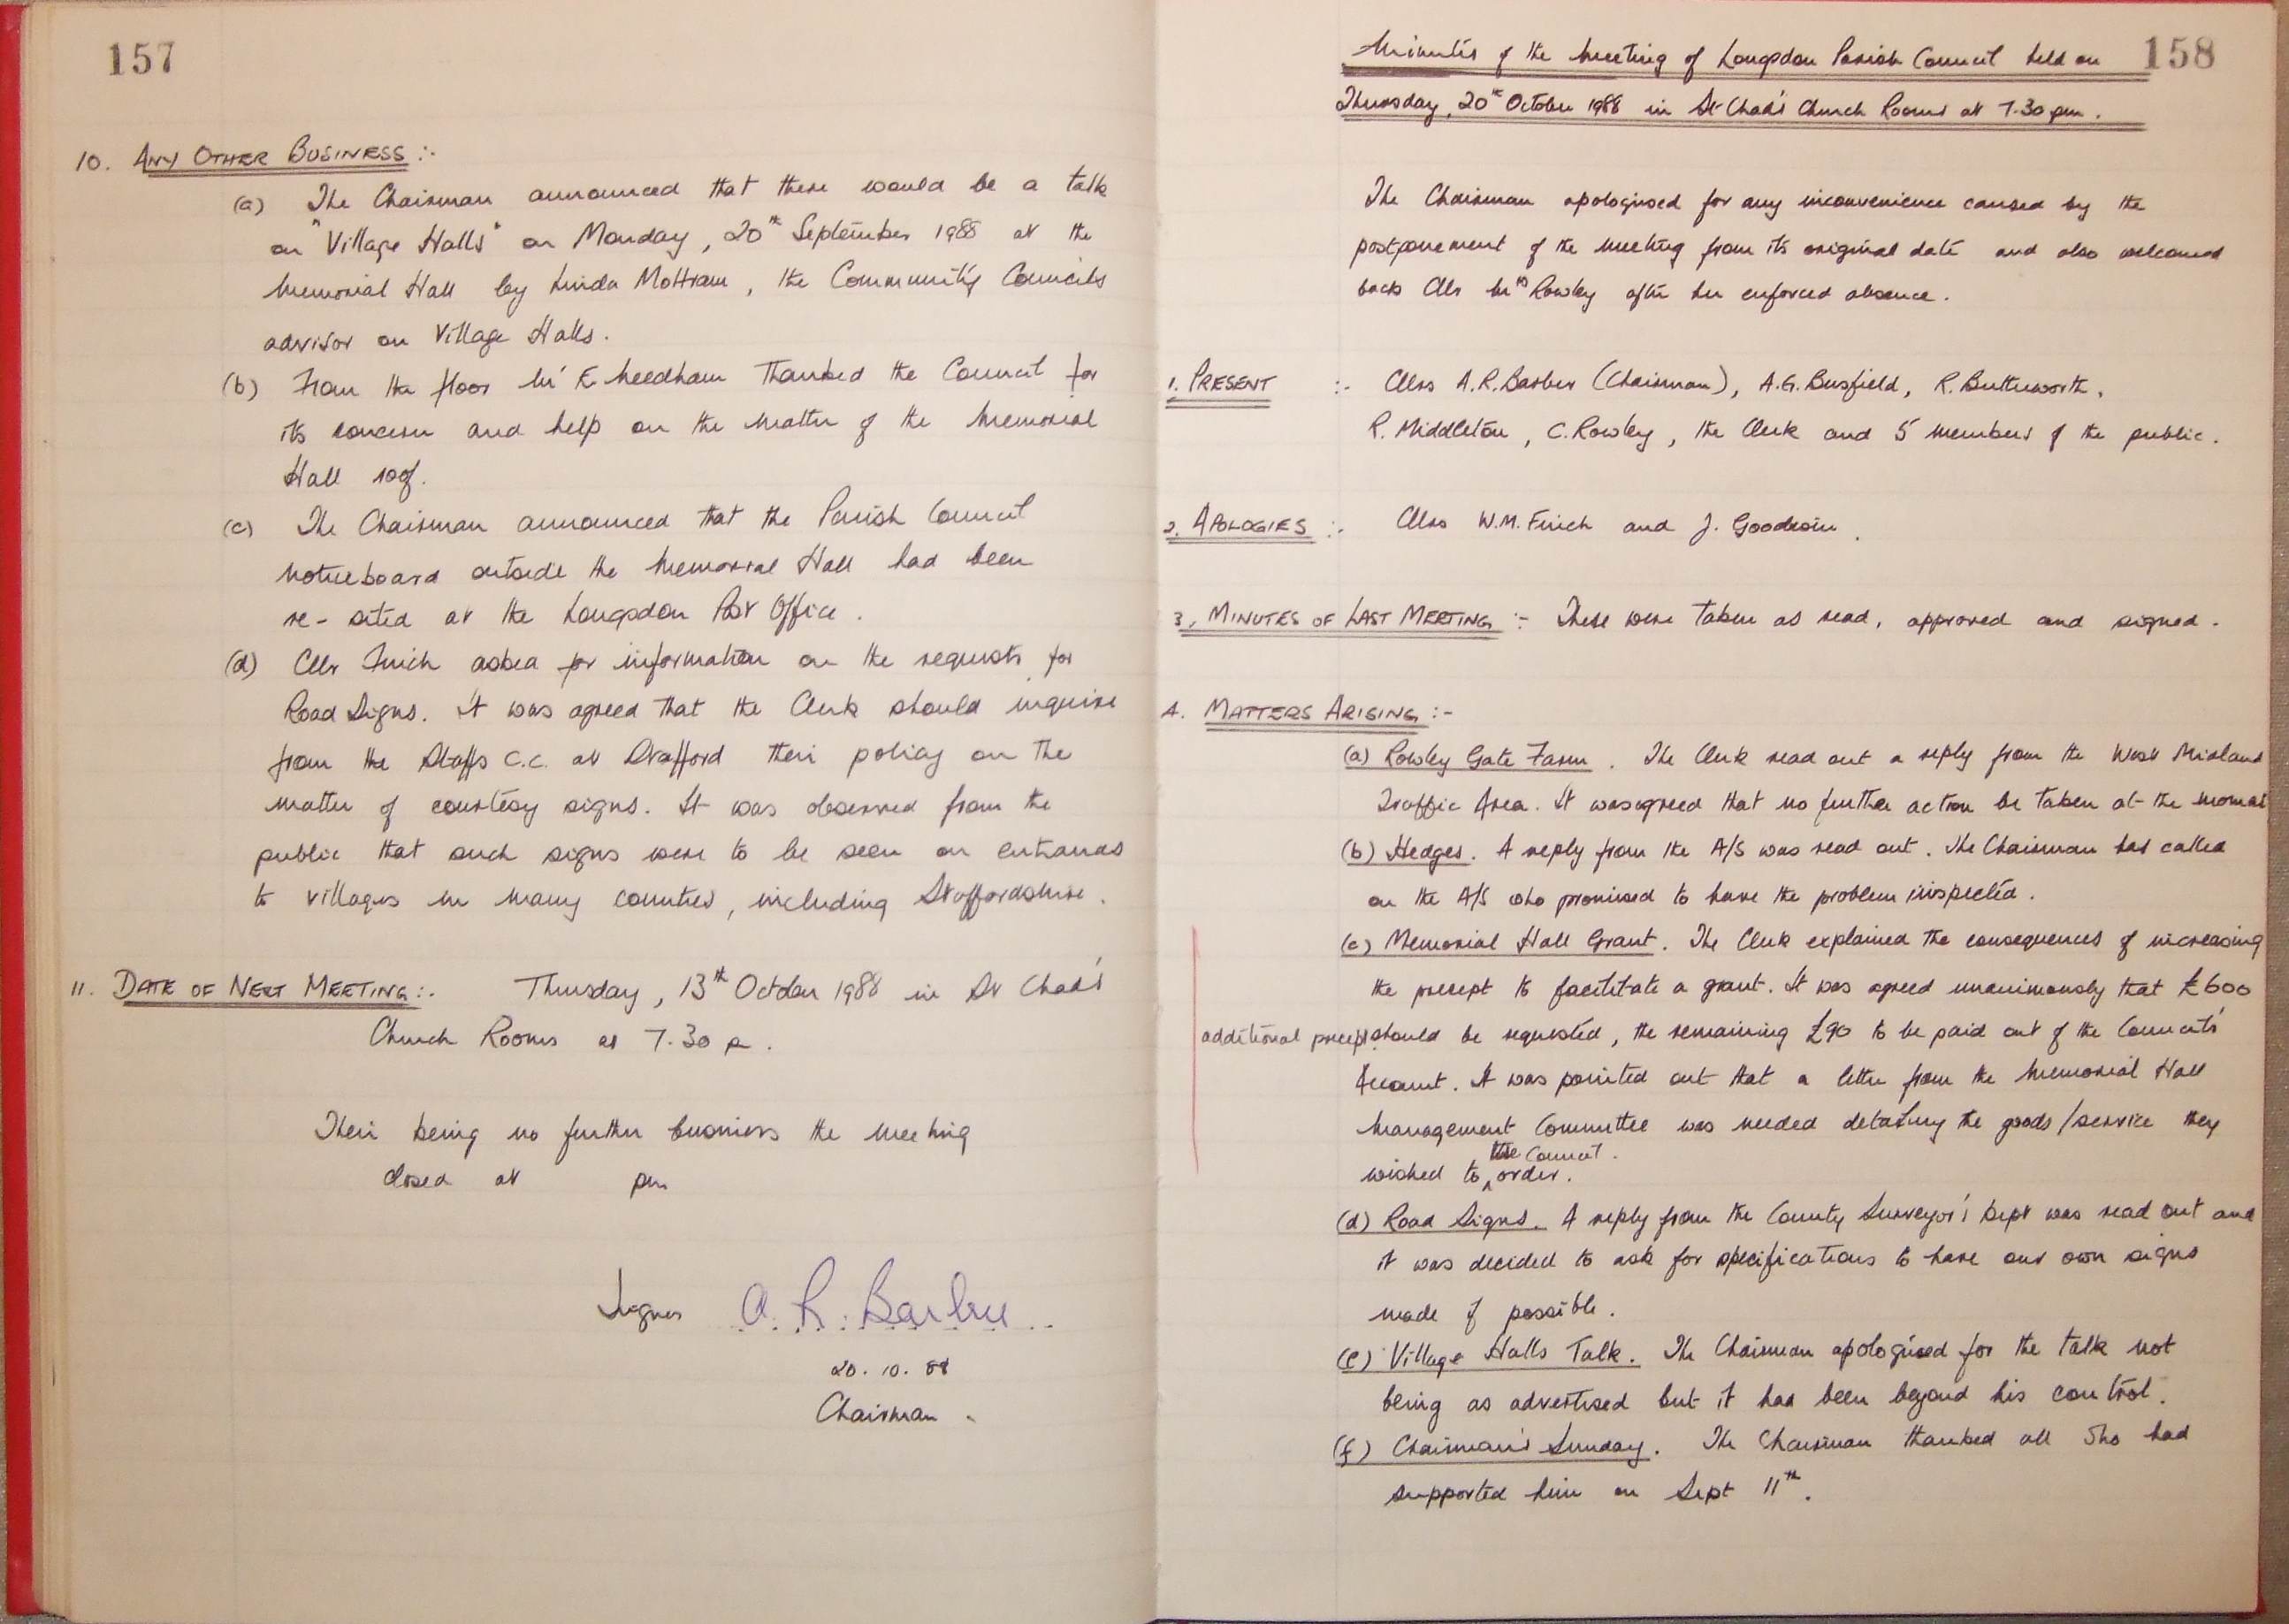 157
10. ANY OTHER BUSINESS :-
(a) The Chairman announced that there would be a talk
on "Village Halls" on Monday, 20th September 1988 at the
Memorial Hall by Linda Mottram, the Community Councils
advisor on Village Halls.
(b) From the floor Mr E. Needham thanked the Council for
its concern and help on the matter of the Memorial
Hall roof.
(c) The Chairman announced that the Parish Council
noticeboard outside the Memorial Hall had been
re-sited at the Longdon Post Office.
(d) Cllr Finch asked for information on the requests for
Road Signs. It was agreed that the Clerk should inquire
from the Staffs C.C. at Stafford their policy on the
matter of courtesy signs. It was observed from the
public that such signs were to be seen on entrances
to villages in many counties, including Staffordshire.
11. DATE OF NEXT MEETING :- Thursday, 13th October 1988 in St Chad's
Church Rooms at 7.30 p.
Their being no further business the meeting
closed at pm
Signed A. R. Barber
20.10.88
Chairman.
158
Minutes of the Meeting of Longdon Parish Council held on
Thursday, 20th October 1988 in St Chad's Church Rooms at 7.30 pm.
The Chairman apologised for any inconvenience caused by the
postponement of the meeting from its original date and also welcomed
back Cllr Mrs Rowley after her enforced absence.
1. PRESENT :- Cllrs A.R. Barber (Chairman), A.G. Busfield, R. Butterworth,
R. Middleton, C. Rowley, the Clerk and 5 members of the public.
2. APOLOGIES :- Cllrs W.M. Finch and J. Goodwin.
3. MINUTES OF LAST MEETING :- These were taken as read, approved and signed.
4. MATTERS ARISING :-
(a) Rowley Gate Farm. The Clerk read out a reply from the West Midland
Traffic Area. It was agreed that no further action be taken at the moment
(b) Hedges. A reply from the A/S was read out. The Chairman had called
on the A/S who promised to have the problem inspected.
(c) Memorial Hall Grant. The Clerk explained the consequences of increasing
the precept to facilitate a grant. It was agreed unanimously that £600
additional precept should be requested, the remaining £90 to be paid out of the Council's
Account. It was pointed out that a letter from the Memorial Hall
Management Committee was needed detailing the goods/service they
the Council.
wished to order.
(d) Road Signs. A reply from the County Surveyor's Dept was read out and
it was decided to ask for specifications to have our own signs
made if possible.
(e) Village Halls Talk. The Chairman apologised for the talk not
being as advertised but it had been beyond his control.
(f) Chairman's Sunday. The Chairman thanked all who had
supported him on Sept 11th.